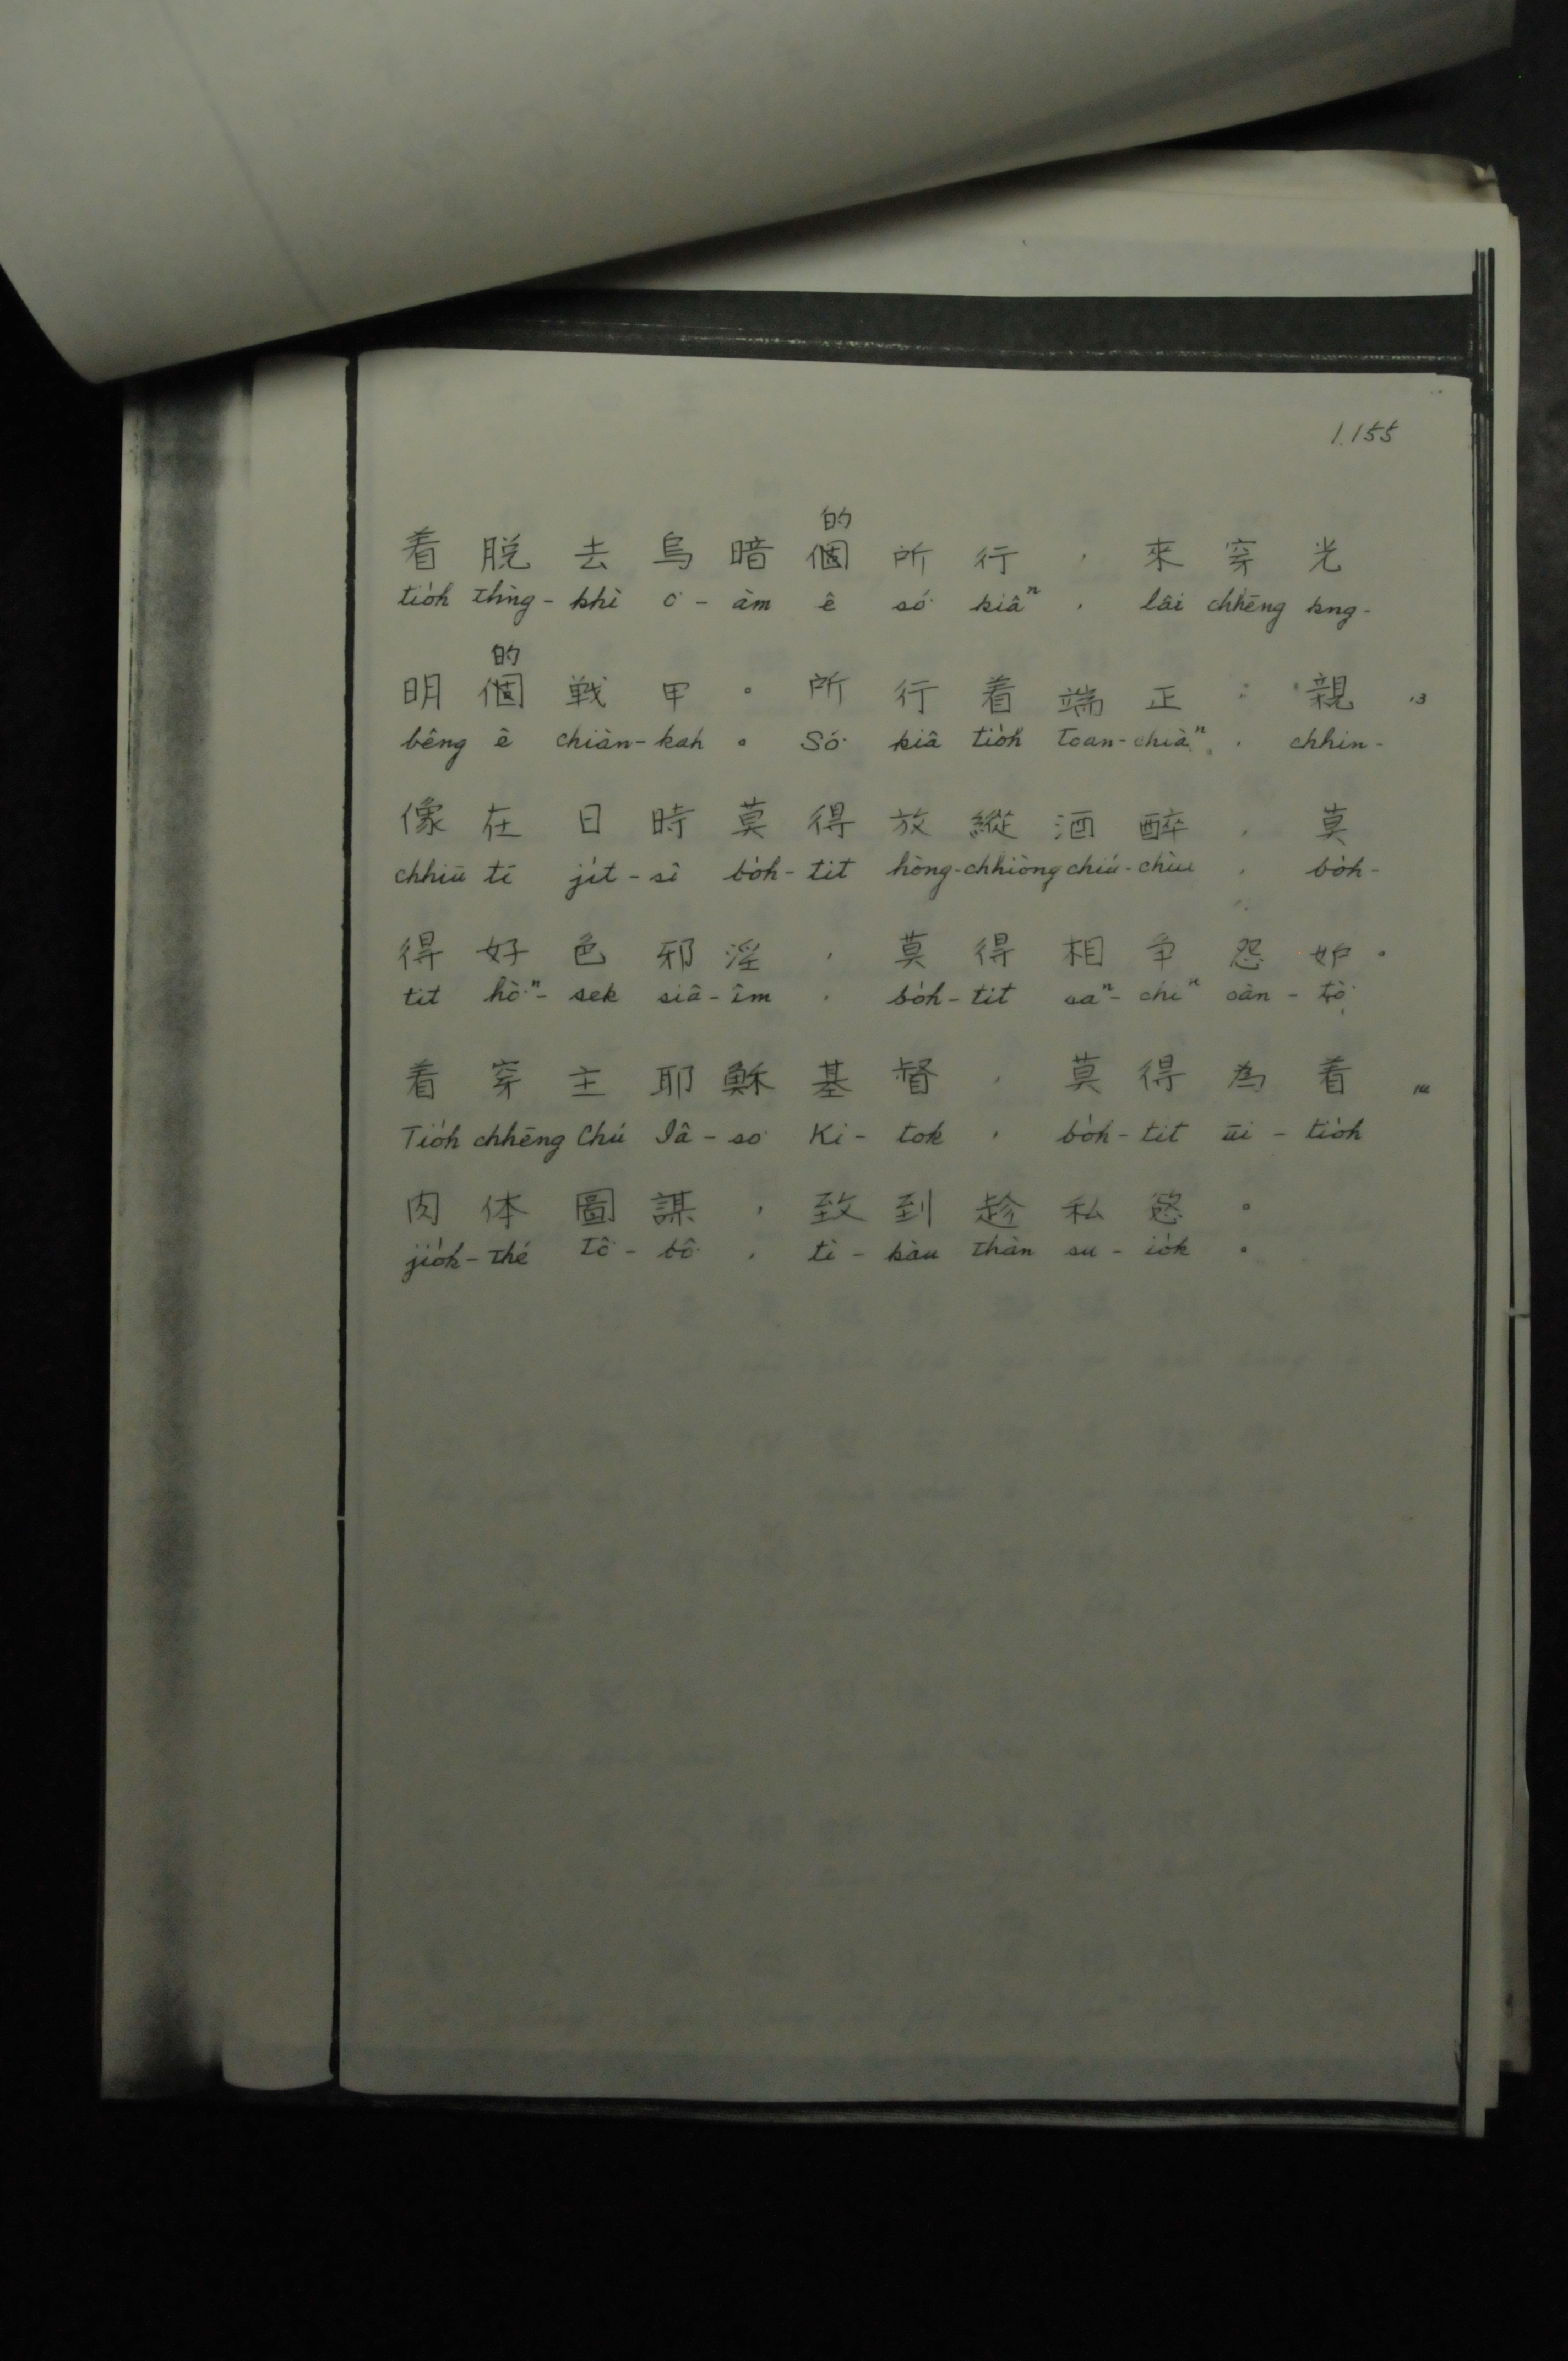 1.155
的
着脱去烏暗個所行，來穿光
tio̍h thǹg-khì o͘-àm ê só͘ kiâⁿ, lâi chhēng kng-
的
明個戰甲。所行着端正：親 13
bêng ê chiàn-kah。Só͘ kiâ tio̍h toan-chiàⁿ, chhin-
像在日時莫得放縱酒醉，莫
chhiū tī ji̍t-sî bo̍h-tit hòng-chhiòng chiú-chùi, bo̍h-
得好色邪淫，莫得相争怨妒。
tit hò͘ⁿ-sek siâ-îm, bo̍h-tit saⁿ-chiⁿ oàn-tò͘.
着穿主耶穌基督，莫得為着 14
Tio̍h chhēng Chú Iâ-so͘ Ki-tok, bo̍h-tit ūi-tio̍h
肉体圖謀，致到趁私慾。
jio̍k-thé tô͘-bô͘, tì-kàu thàn su-io̍k。